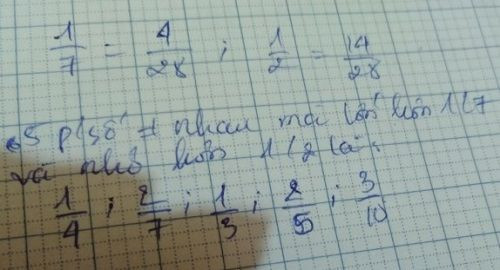 1/7 = 4/28 ; 1/2 = 14/28
5 p/số ≠ nhau mà lớn hơn 1/7
và nhỏ hơn 1/2 là :
1/4 ; 2/7 ; 1/3 ; 2/5 ; 3/10